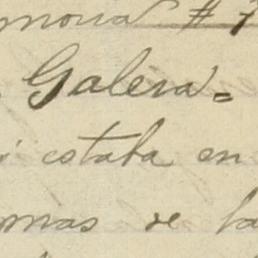 moria # 7
Galera=
estaba en
mas de la